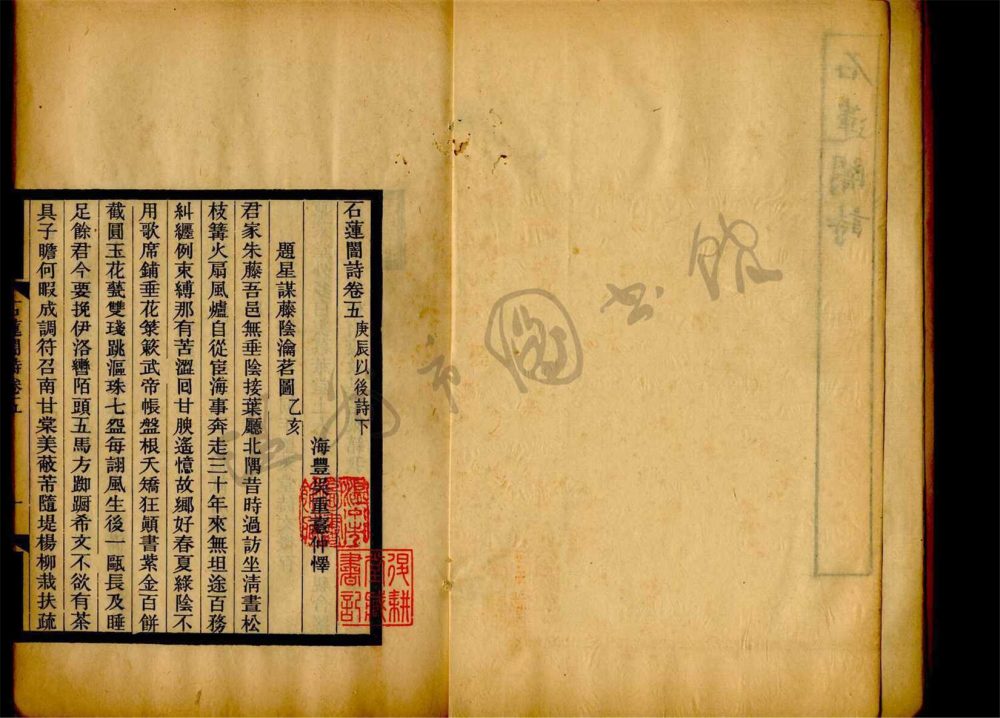 石蓮闇詩卷五 庚辰以後詩下
海豐吳重憙仲懌
題星謀藤陰瀹茗圖 乙亥
君家朱藤吾邑無垂陰接葉廳北隅昔時過訪坐淸晝松
枝篝火扇風爐自從宦海事奔走三十年來無坦途百務
糾纏例束縛那有苦澀回甘腴遙憶故鄉好春夏綠陰不
用歌席鋪垂花㲯㲯武帝帳盤根夭矯狂顚書紫金百餅
截圓玉花甆雙琖跳漚珠七盌每詡風生後一甌長及睡
足餘君今要挽伊洛轡陌頭五馬方踟躕希文不欲有茶
具子瞻何暇成調符召南甘棠美蔽芾隨堤楊柳栽扶疏
石蓮闇詩卷五
一
石蓮闇詩
市圖書館